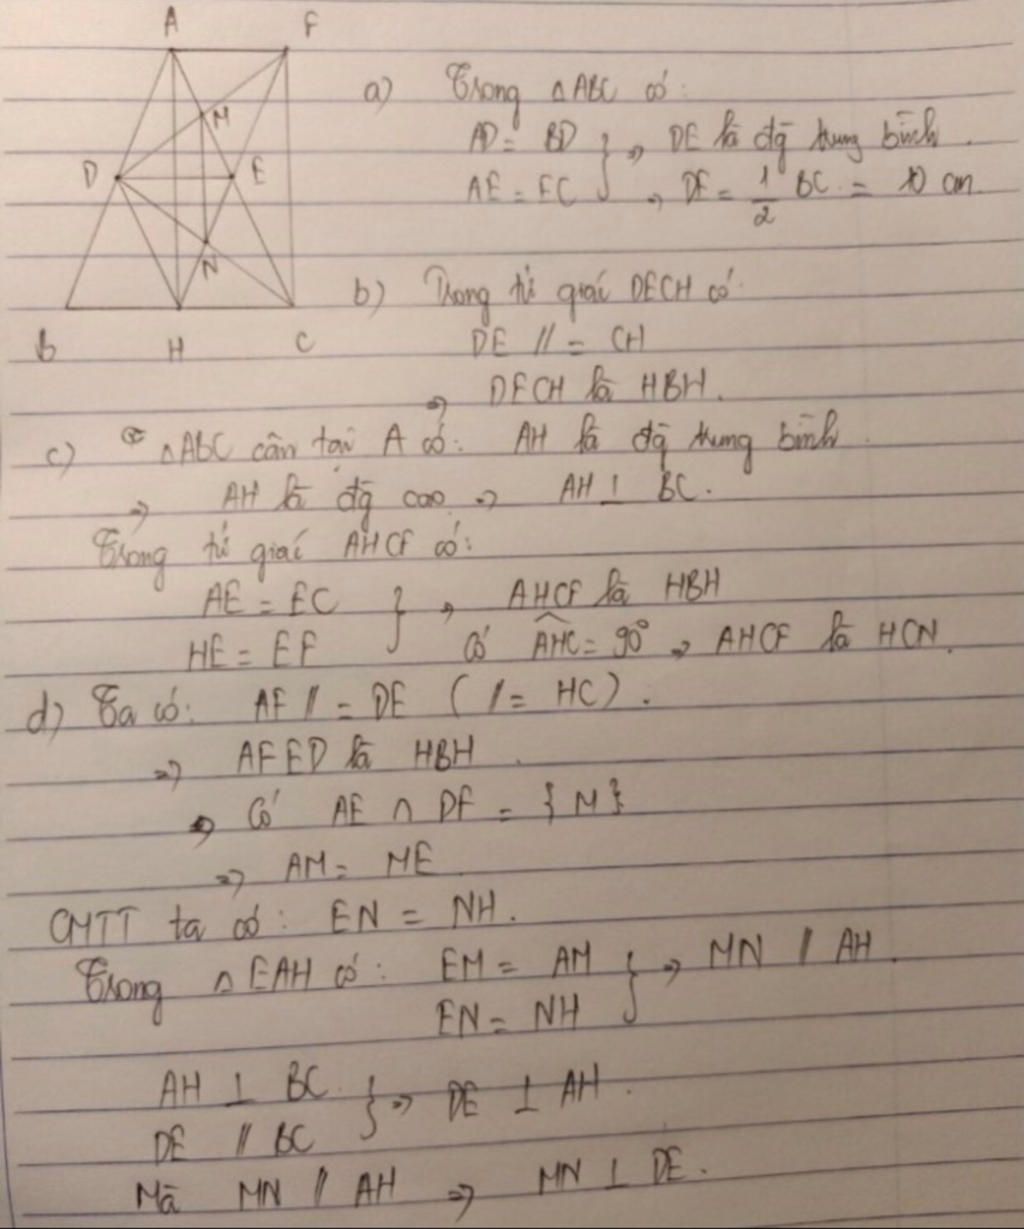 A F
M
D E
N
B H C
a) Trong △ABC có:
AD = BD
AE = EC } => DE là đg trung bình.
=> DE = 1/2 BC = 10 cm
b) Trong tứ giác DECH có
DE // = CH
=> DECH là HBH.
c) △ABC cân tại A có: AH là đg trung bình.
=> AH là đg cao => AH ⊥ BC.
Trong tứ giác AHCF có:
AE = EC
HE = EF } => AHCF là HBH
Có AHC = 90° => AHCF là HCN.
d) Ta có: AF // = DE ( // = HC ).
=> AFED là HBH.
=> Có AE ∩ DF = { M }
=> AM = ME
CMTT ta có: EN = NH.
Trong △EAH có: EM = AM
EN = NH } => MN // AH.
AH ⊥ BC
DE // BC } => DE ⊥ AH.
Mà MN // AH => MN ⊥ DE.